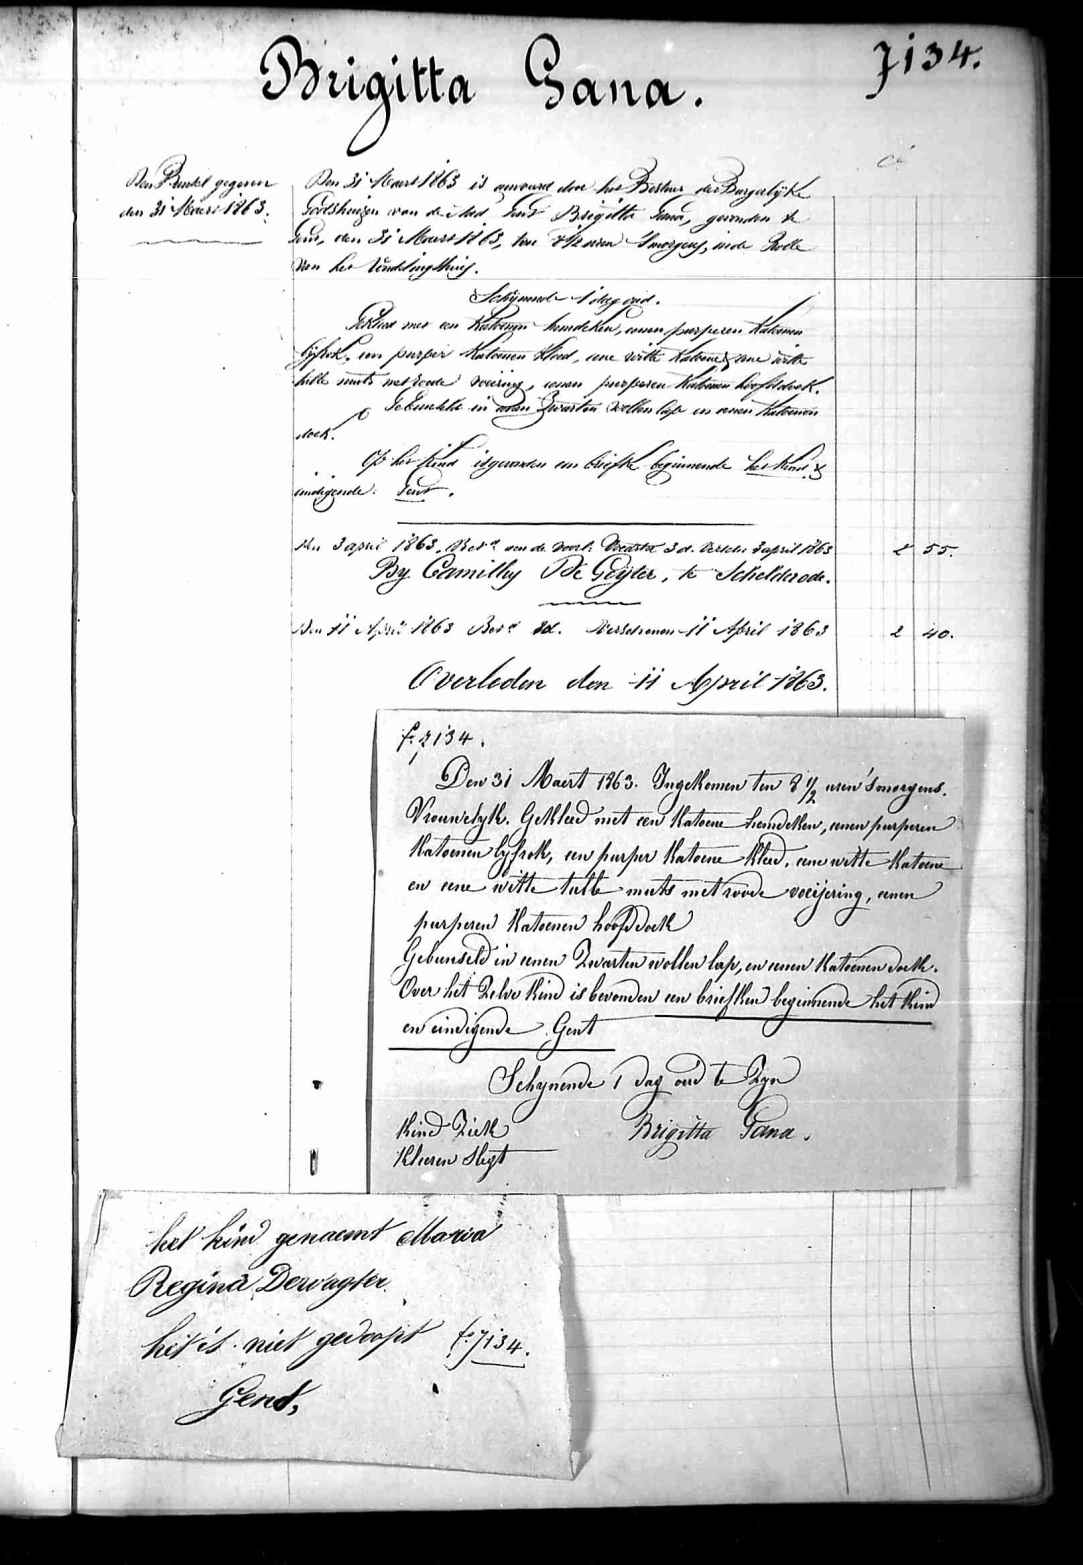 Brigitta Gana.
7134.
Den Bundel gegeven
den 31 Maert 1863.
Den 31 Maert 1863 is aenveerd door het Bestuer der Burgerlyke
Godshuizen van de stad Gent Brigitta Gana, gevonden te
Gent, den 31 Maert 1863, ten 8 1/2 uren 'smorgens, in de Rolle
van het Vindelinghuis.
Schynende 1 dag oud.
Gekleed met een Katoenen hemdeken, eenen purperen Katoenen
lyfrok, een purper Katoenen Kleed, eene witte Katoene & eene witte
tulle muts met roode voeiering, eenen purperen Katoenen hoofddoek.
Gebunseld in eenen Zwarten wollen lap en eenen Katoenen
doek.
Op het Kind is gevonden een briefke beginnende het Kind &
eindigende: Gent.
Den 3 april 1863. Bet.d aen de voorl: Voedster 3 d. versch: 3 april 1863 2 55.
By Camillus De Geyter, te Schelderode.
Den 11 April 1863 Bet.d 8d. Verschenen 11 April 1863 2 40.
Overleden den 11 April 1863.
f.º 7134.
Den 31 Maert 1863. Ingekomen ten 8 1/2 uren 'smorgens.
Vrouwelyk. Gekleed met een Katoene hemdeken, eenen purperen
Katoenen lyfrok, een purper Katoene Kleed, eene witte Katoene
en eene witte tulle muts met roode voeijering, eenen
purperen Katoenen hoofddoek
Gebunseld in eenen Zwarten wollen lap, en eenen Katoenen doek.
Over het Zelve Kind is bevonden een briefken beginnende het Kind
en eindigende Gent
Schynende 1 dag oud te Zyn
Kind Ziek
Brigitta Gana.
Kleeren slegt
het kind genaemt Maria
Regina Dewagter.
het is niet gedoopt f.º 7134.
Gent,